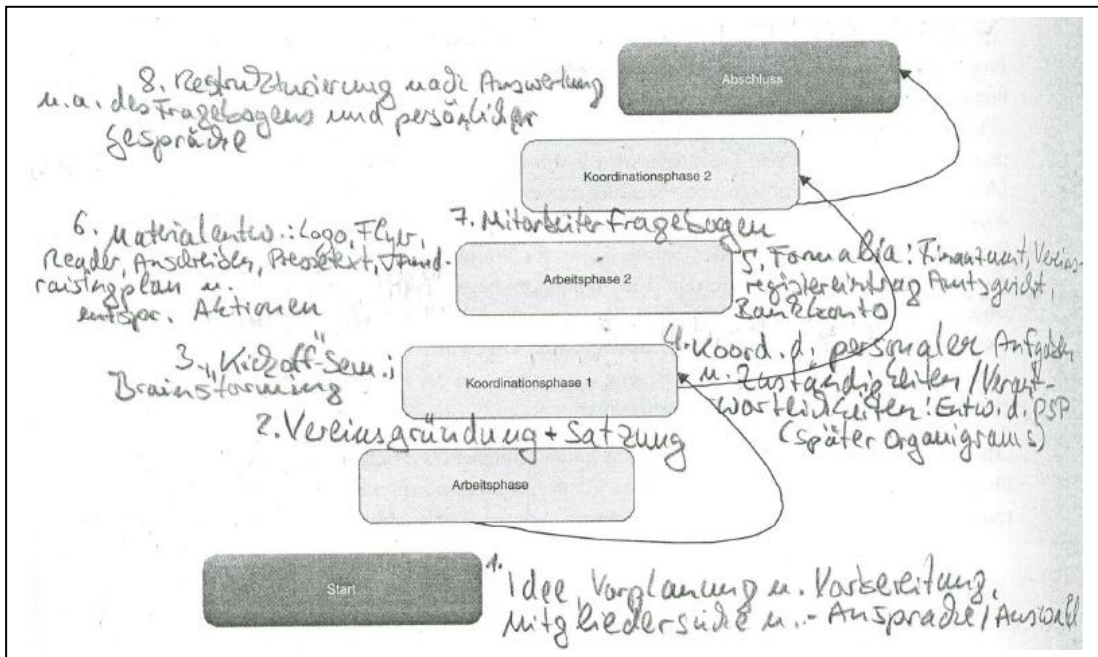 Abschluss
8. Restrukturierung nach Auswertung
u.a. des Fragebogens und persönlicher
Gespräche
Koordinationsphase 2
7. Mitarbeiterfragebogen
6. Materialentw.: Logo, Flyer,
Reader, Anschreiben, Pressetext, Fund-
raisingplan u.
entspr. Aktionen
Arbeitsphase 2
5. Formalia: Finanzamt, Vereins-
registereintrag Amtsgericht,
Bankkonto
3. „Kickoff"-Sem.;
Brainstorming
Koordinationsphase 1
4. Koord. d. personaler Aufgaben
u. Zuständigkeiten/Verant-
wortlichkeiten: Entw. d. PSP
(später Organigramms)
2. Vereinsgründung + Satzung
Arbeitsphase
Start
1. Idee, Vorplanung u. Vorbereitung,
Mitgliedersuche u. -Ansprache/Auswahl